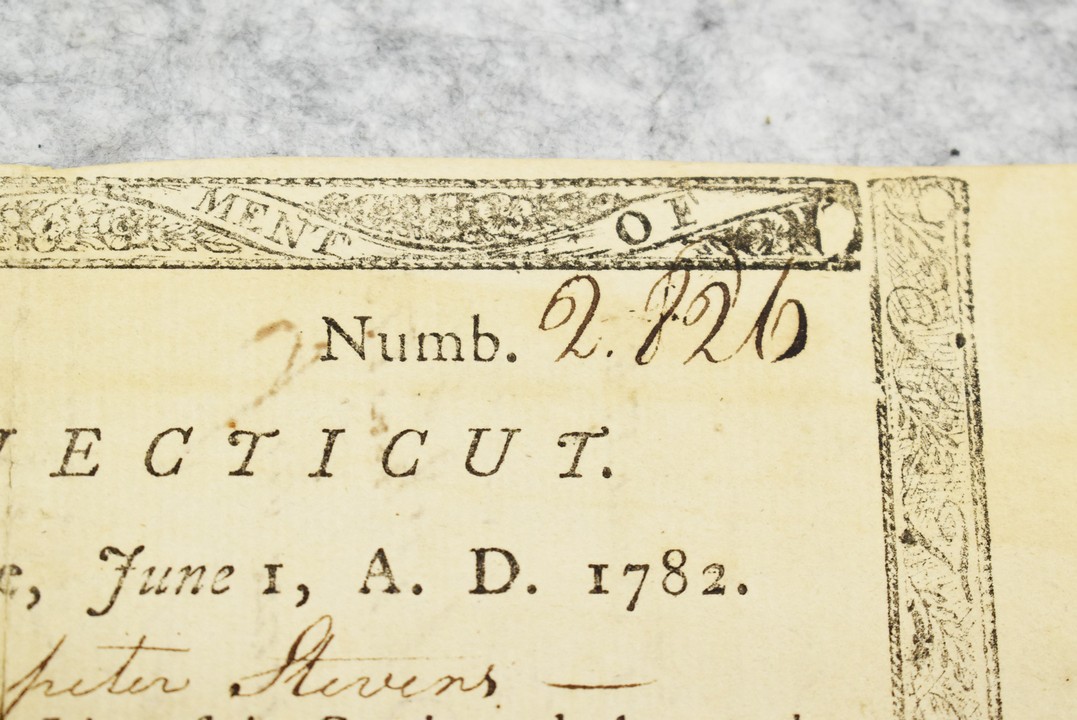 MENT OF
Numb. 2.826
NECTICUT.
e, June 1, A. D. 1782.
peter Stevens —